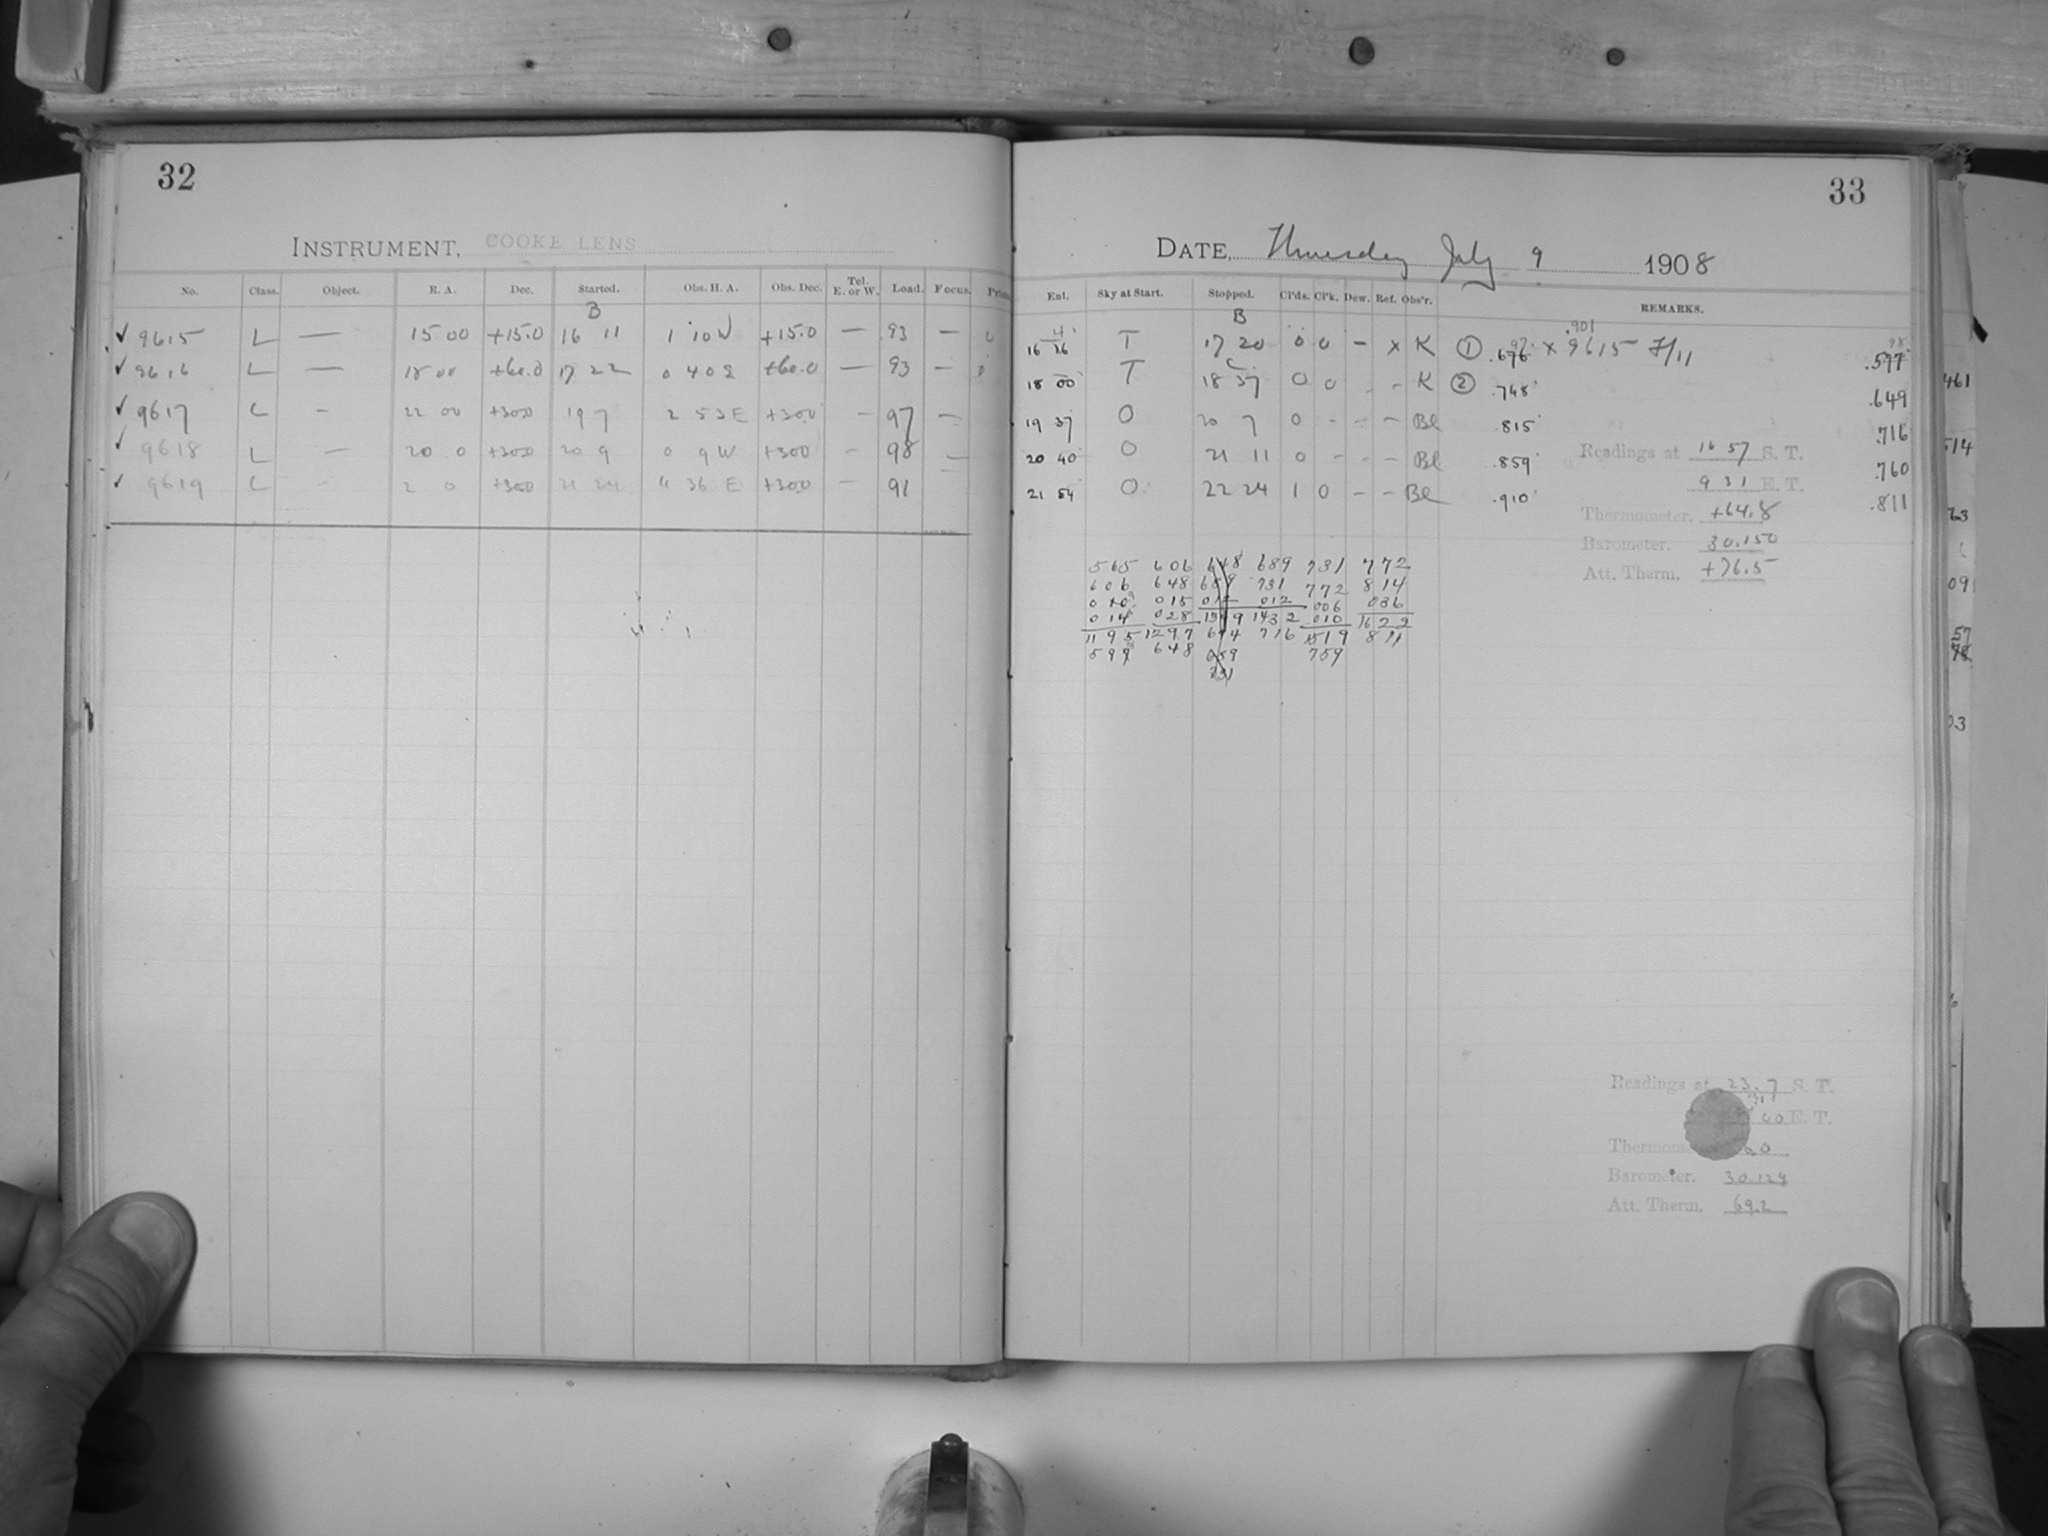 32
INSTRUMENT, COOKE LENS
No. Class. Object. R. A. Dec. Started. Obs. H. A. Obs. Dec. Tel. E. or W. Load. Focus.
B
✓ 9615 L — 15 00 +15.0 16 11 1 10 W +15.0 — 93 —
✓ 9616 L — 18 00 +60.0 17 22 0 40 E +60.0 — 93 —
✓ 9617 L — 22 00 +30.0 19 7 2 53 E +30.0 — 97 —
✓ 9618 L — 20 0 +30.0 20 9 0 9 W +30.0 — 98 —
✓ 9619 L — 2 0 +30.0 21 24 4 36 E +30.0 — 91
33
DATE, Thursday July 9 1908
Ent. Sky at Start. Stopped. Cl'ds. Cl'k. Dew. Ref. Obs'r. REMARKS.
B
T 17 20 0 0 — x K ① x 9615 F/11
18 00 T 18 37 0 0 - - K ② .748 .649
19 37 O 20 7 0 - - - Bl .815 .716
20 40 O 21 11 0 - - - Bl .859 .760
21 54 O 22 24 1 0 - - Bl .910 .811
Readings at 16 57 S. T.
9 31 E. T.
Thermometer. +64.8
Barometer. 30.150
Att. Therm. +76.5
565 606 648 689 731 772
606 648 689 731 772 814
015 012 006 036
014 028 010
1195 1297 1432 1519 1622
648 716 811
759
Readings at 23.7 S. T.
40 E. T.
Barometer. 30.124
Att. Therm. 69.2